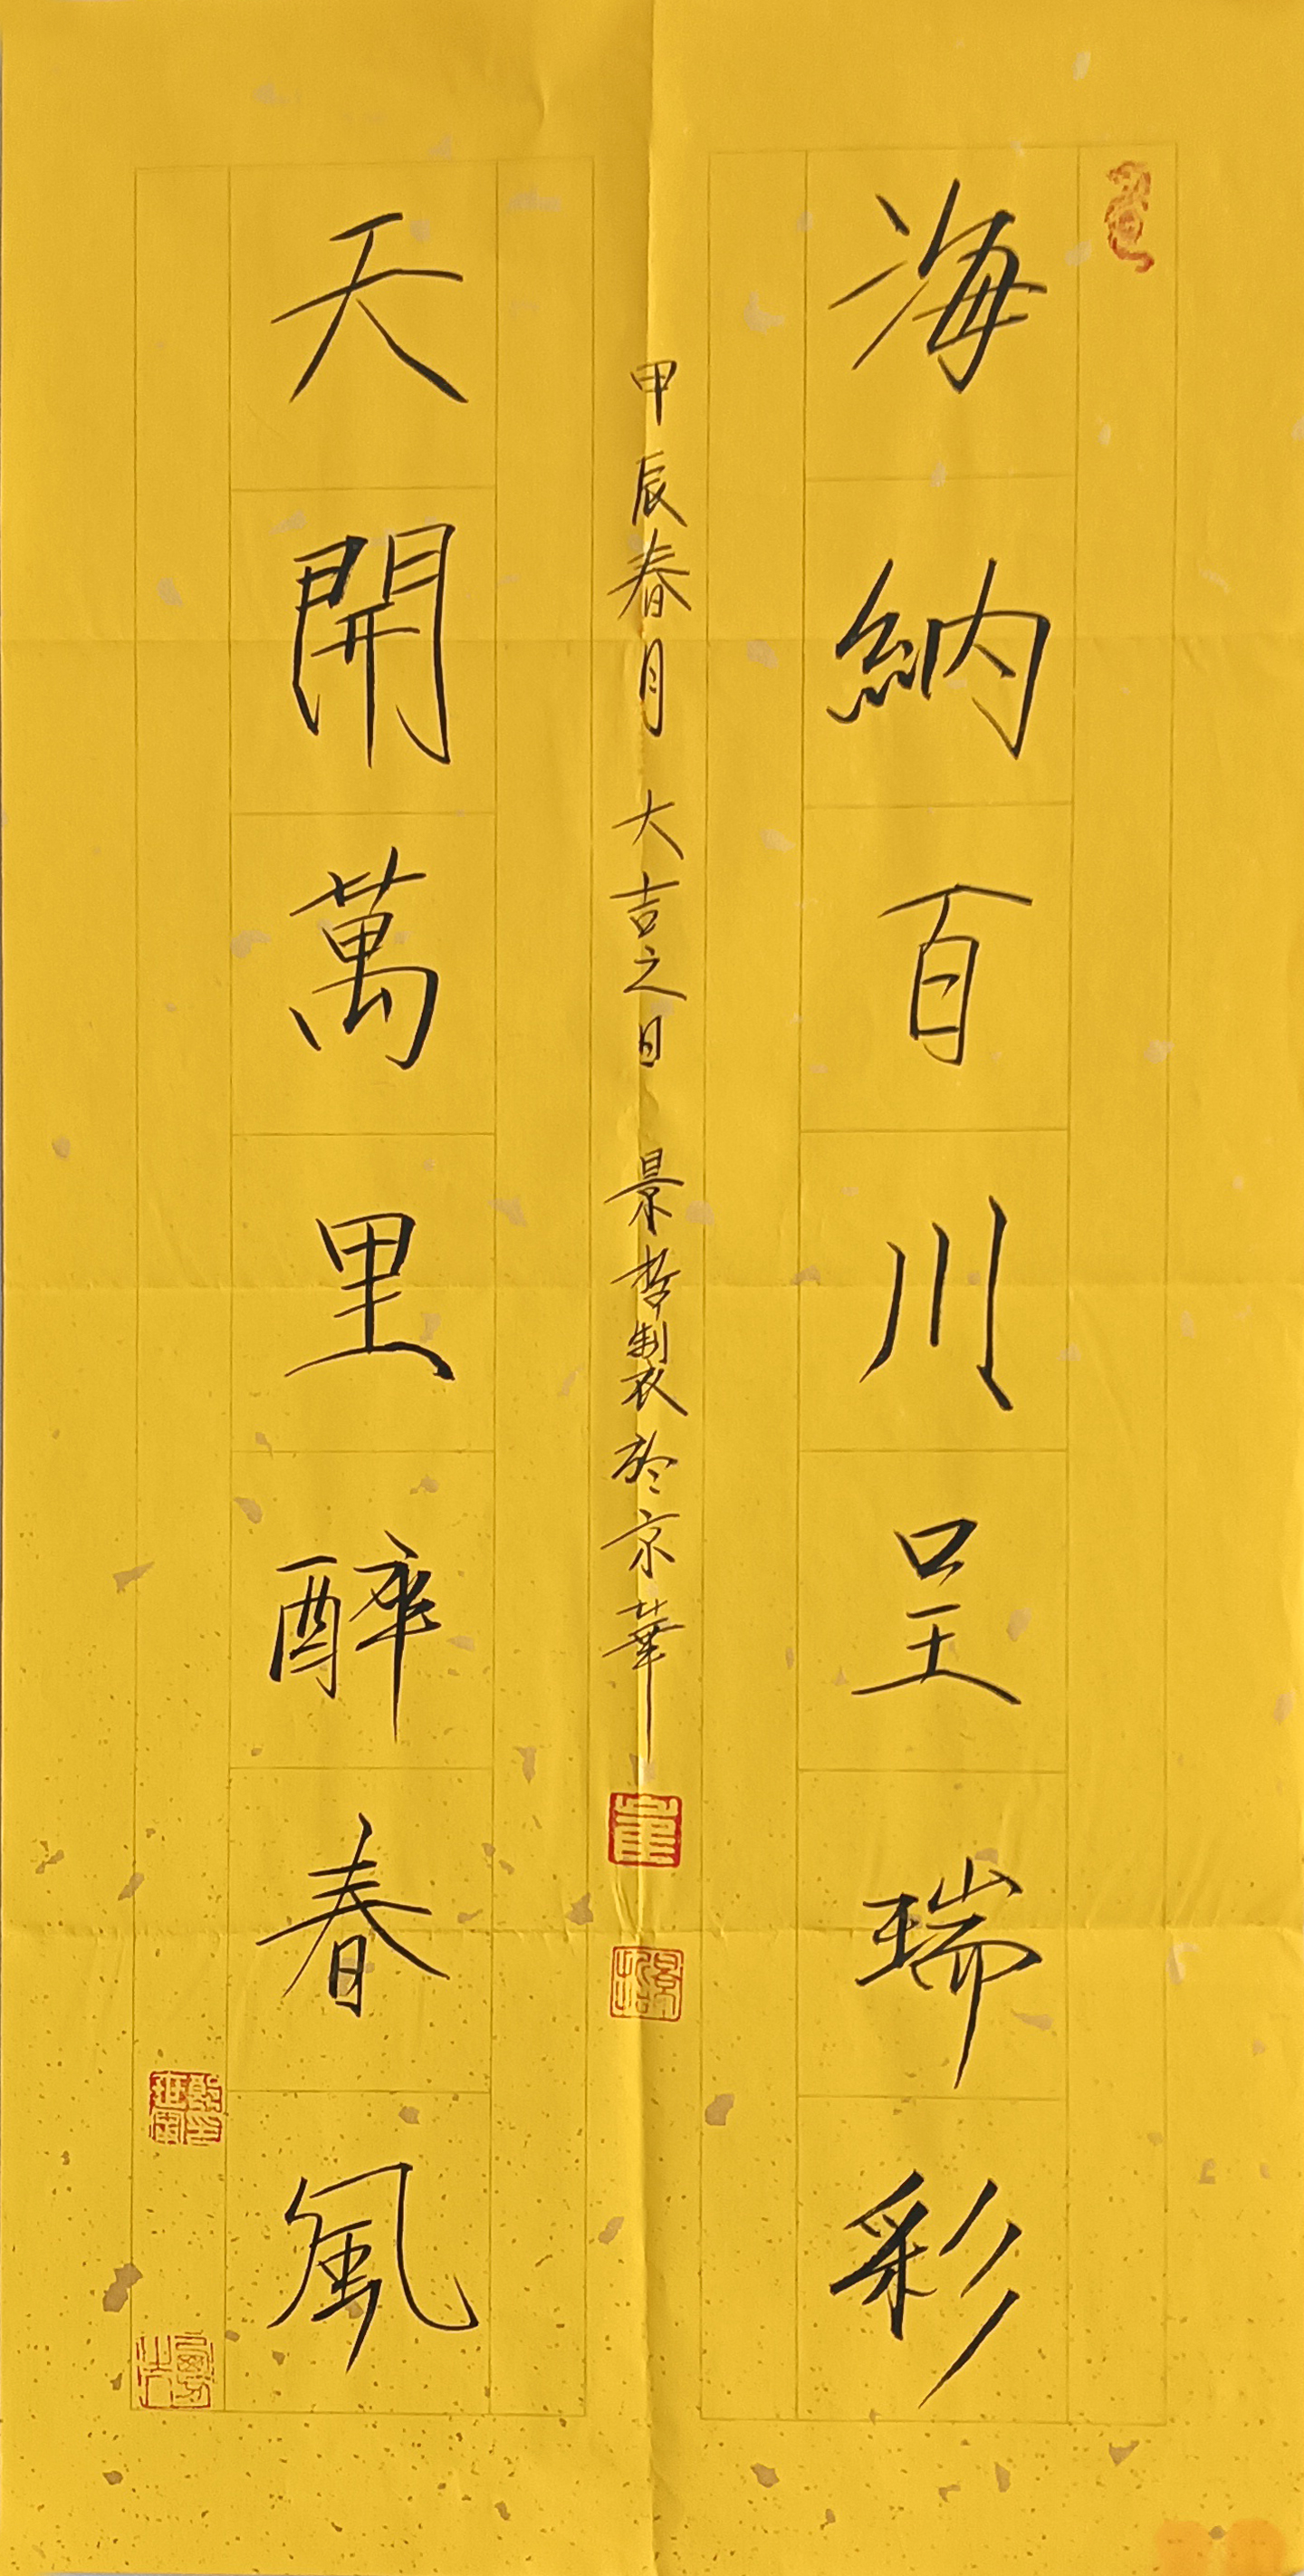 海納百川呈瑞彩
甲辰春月 大吉之日 景哲製於京華
天開萬里醉春風